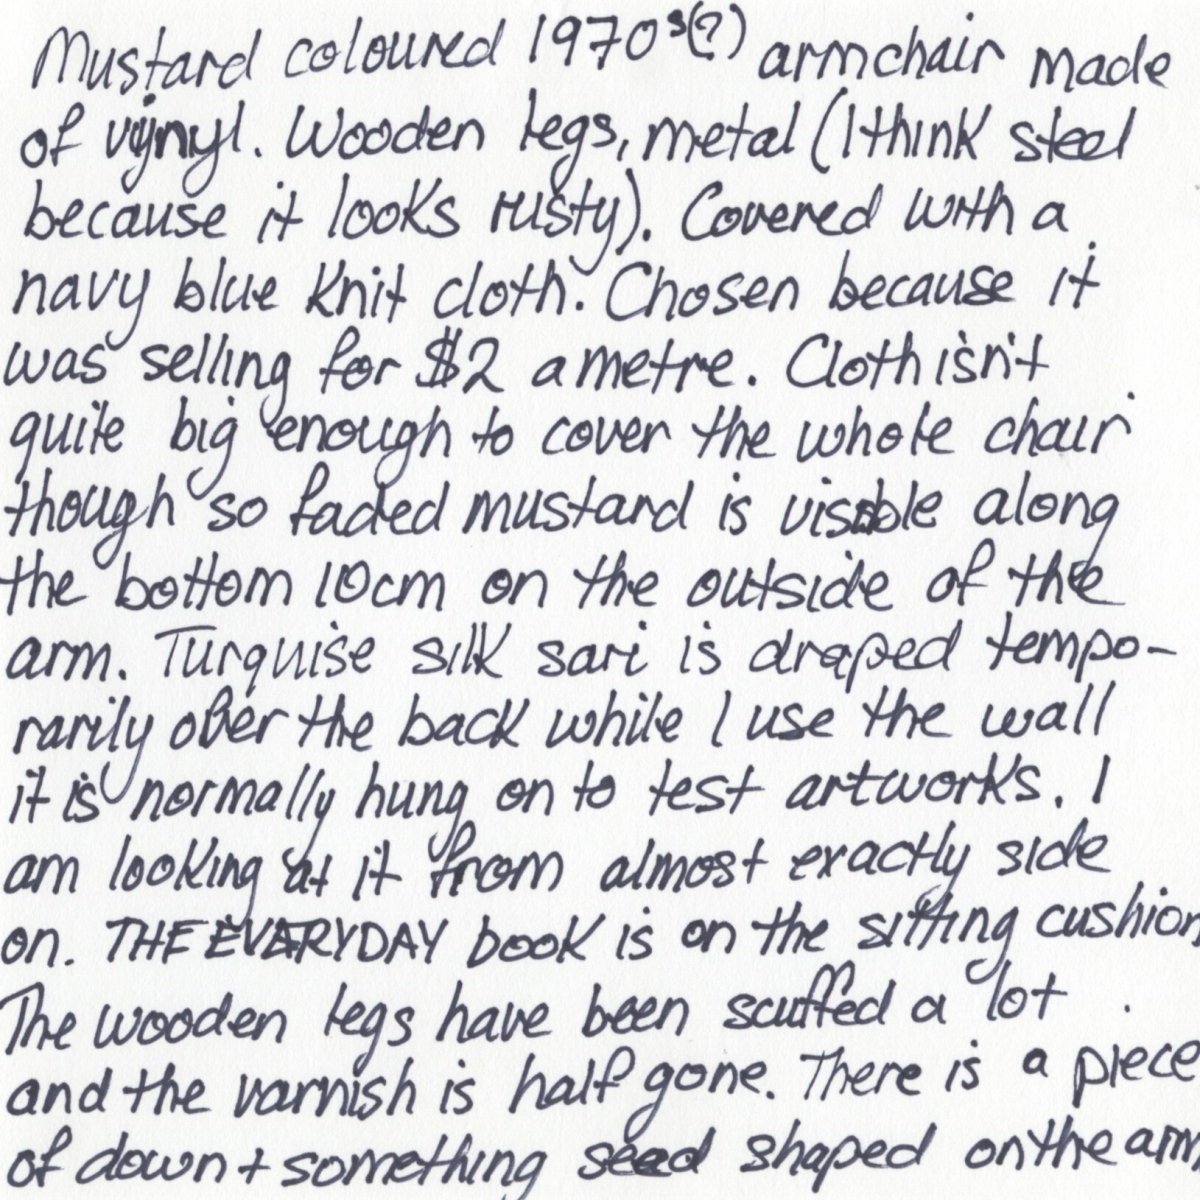 Mustard coloured 1970s(?) armchair made
of vynyl. Wooden legs, metal (I think steel
because it looks rusty). Covered with a
navy blue knit cloth. Chosen because it
was selling for $2 a metre. Cloth isn't
quite big enough to cover the whole chair
though so faded mustard is visible along
the bottom 10cm on the outside of the
arm. Turquise silk sari is draped tempo-
rarily over the back while I use the wall
it is normally hung on to test artworks. I
am looking at it from almost exactly side
on. THE EVERYDAY book is on the sitting cushion
The wooden legs have been scuffed a lot
and the varnish is half gone. There is a piece
of down + something seed shaped on the arm